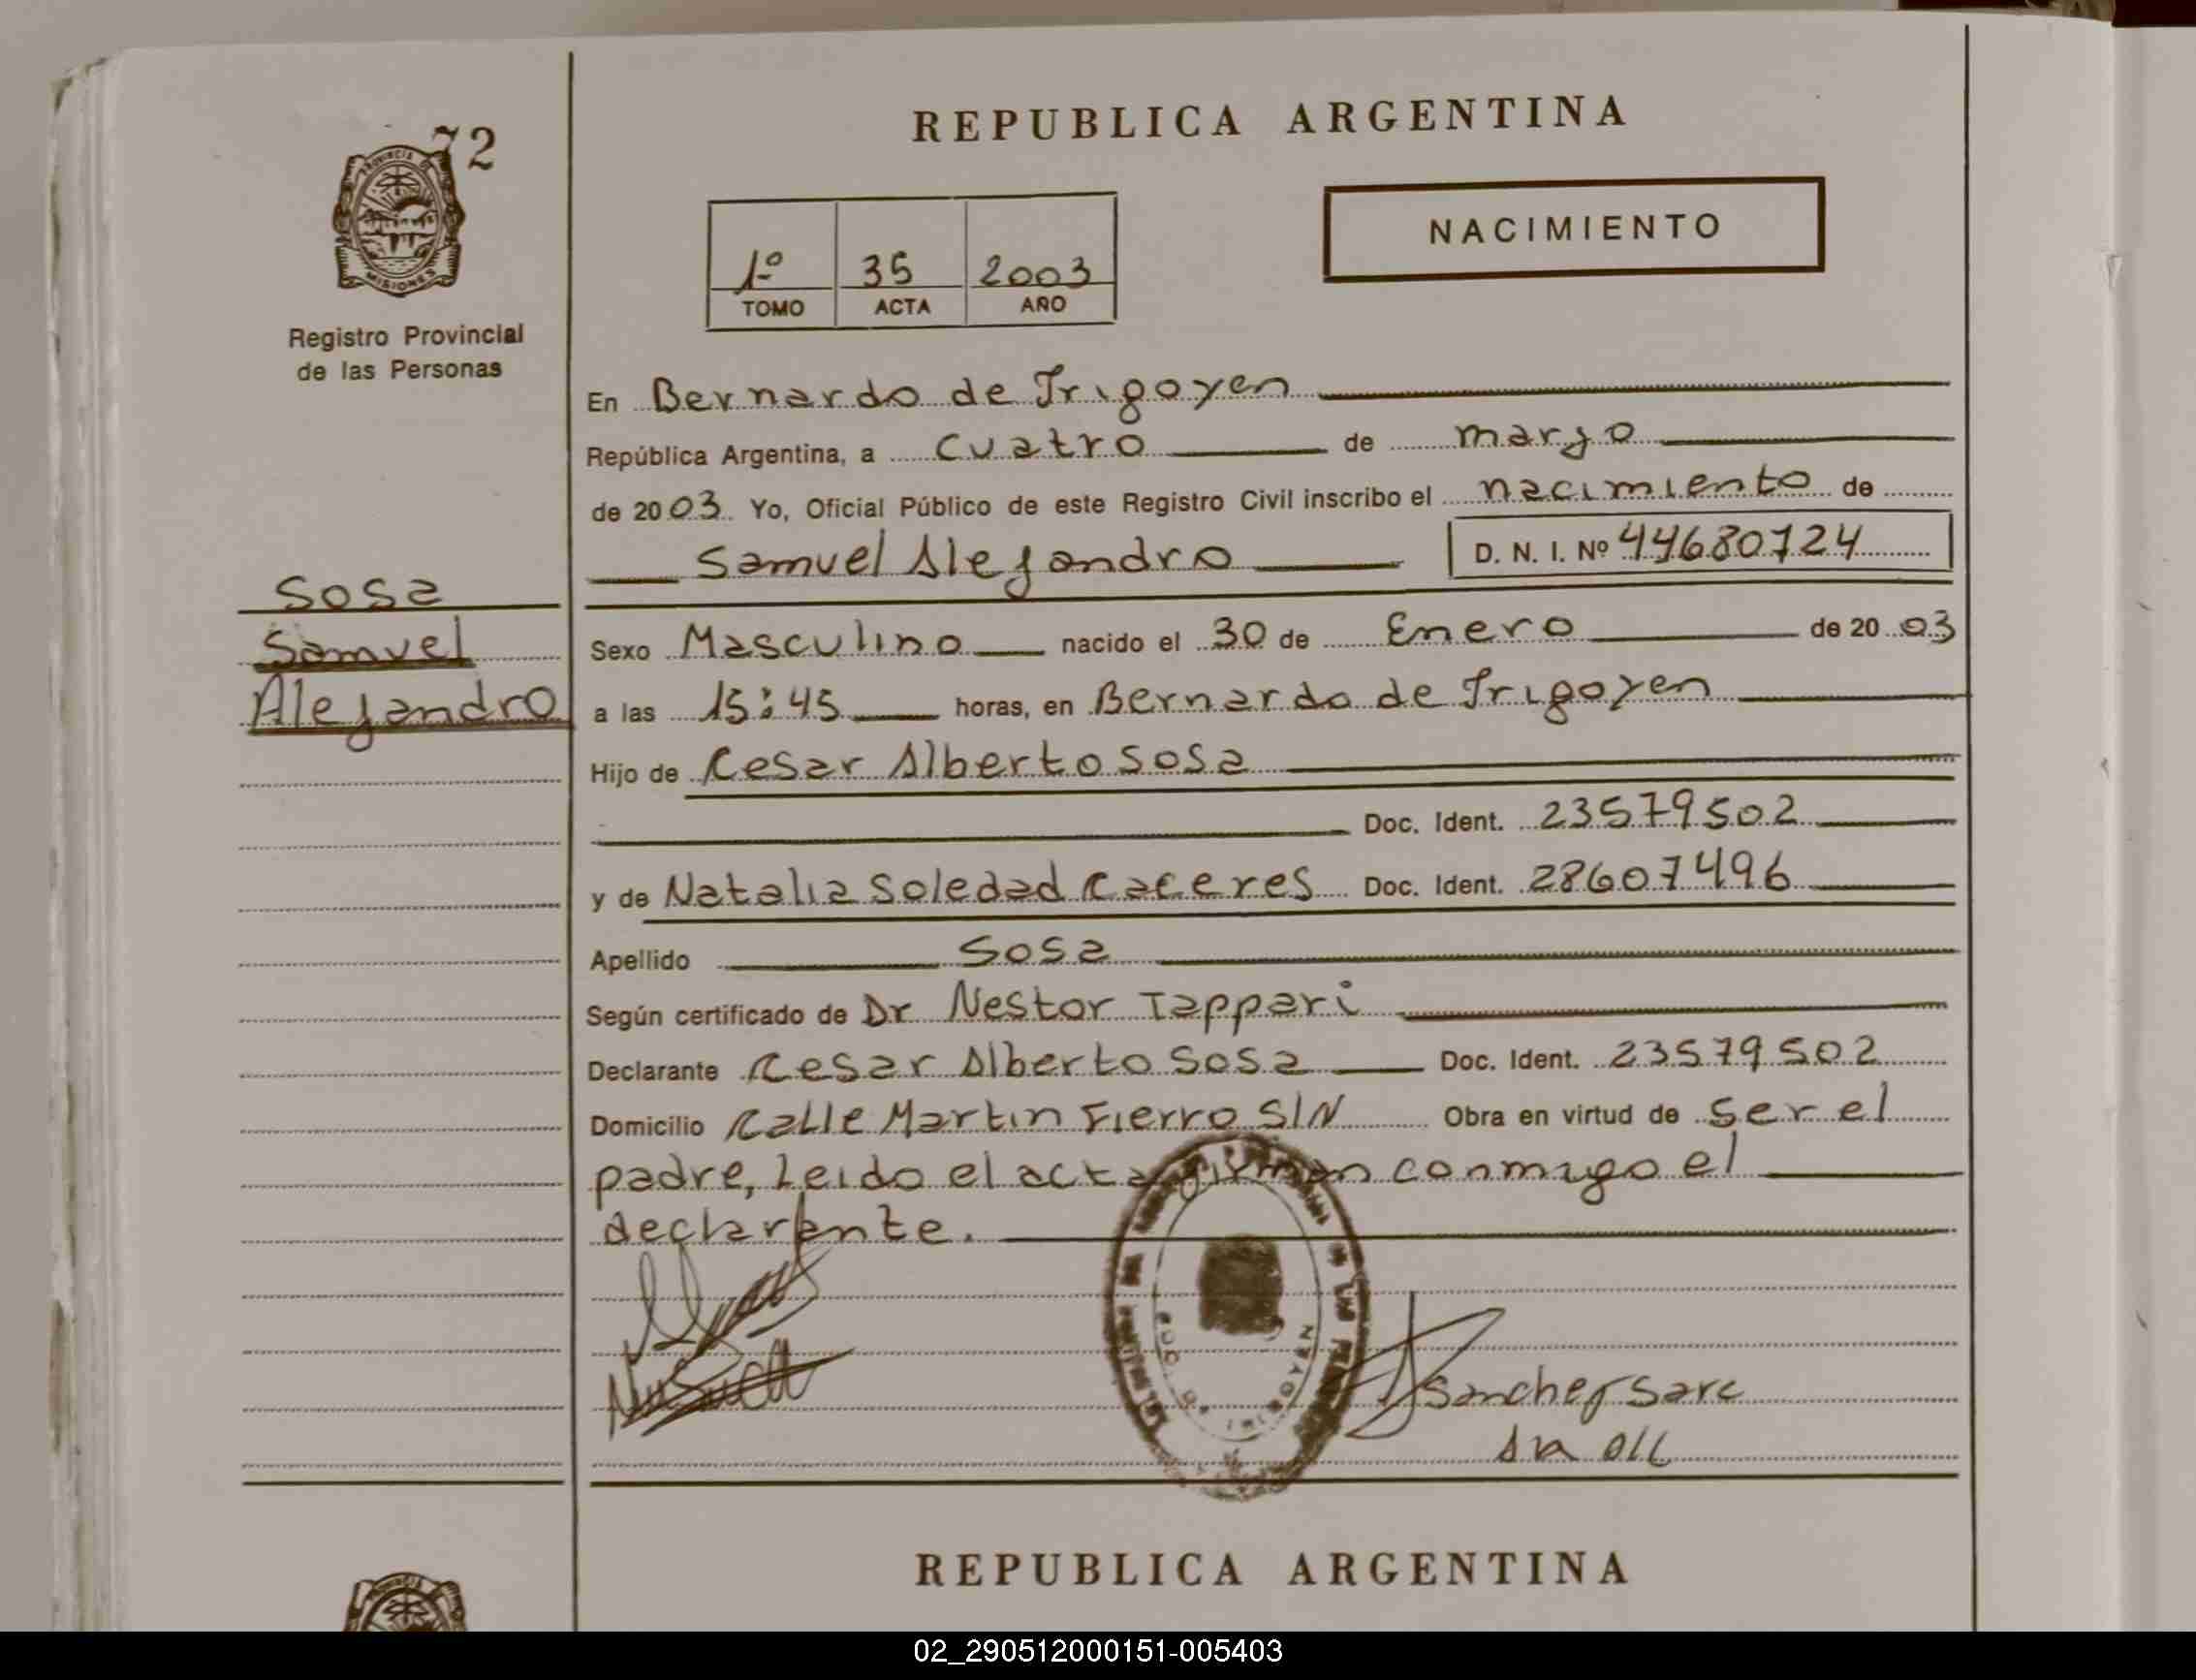 72
PROVINCIA DE
MISIONES
Registro Provincial
de las Personas
REPUBLICA ARGENTINA
NACIMIENTO
1º 35 2003
TOMO ACTA AÑO
En Bernardo de Irigoyen
República Argentina, a cuatro de marzo
de 2003. Yo, Oficial Público de este Registro Civil inscribo el nacimiento de
Samuel Alejandro D. N. I. Nº 44680724
Sosa
Samuel
Alejandro
Sexo Masculino nacido el 30 de Enero de 2003
a las 15:45 horas, en Bernardo de Irigoyen
Hijo de Cesar Alberto Sosa
Doc. Ident. 23579502
y de Natalia Soledad Caceres Doc. Ident. 28607496
Apellido Sosa
Según certificado de Dr Nestor Tappari
Declarante Cesar Alberto Sosa Doc. Ident. 23579502
Domicilio Calle Martin Fierro S/N Obra en virtud de ser el
padre, Leido el acta firman conmigo el
declarante.
BDO. DE IRIGOYEN
Sanchez Sara
REPUBLICA ARGENTINA
02_290512000151-005403